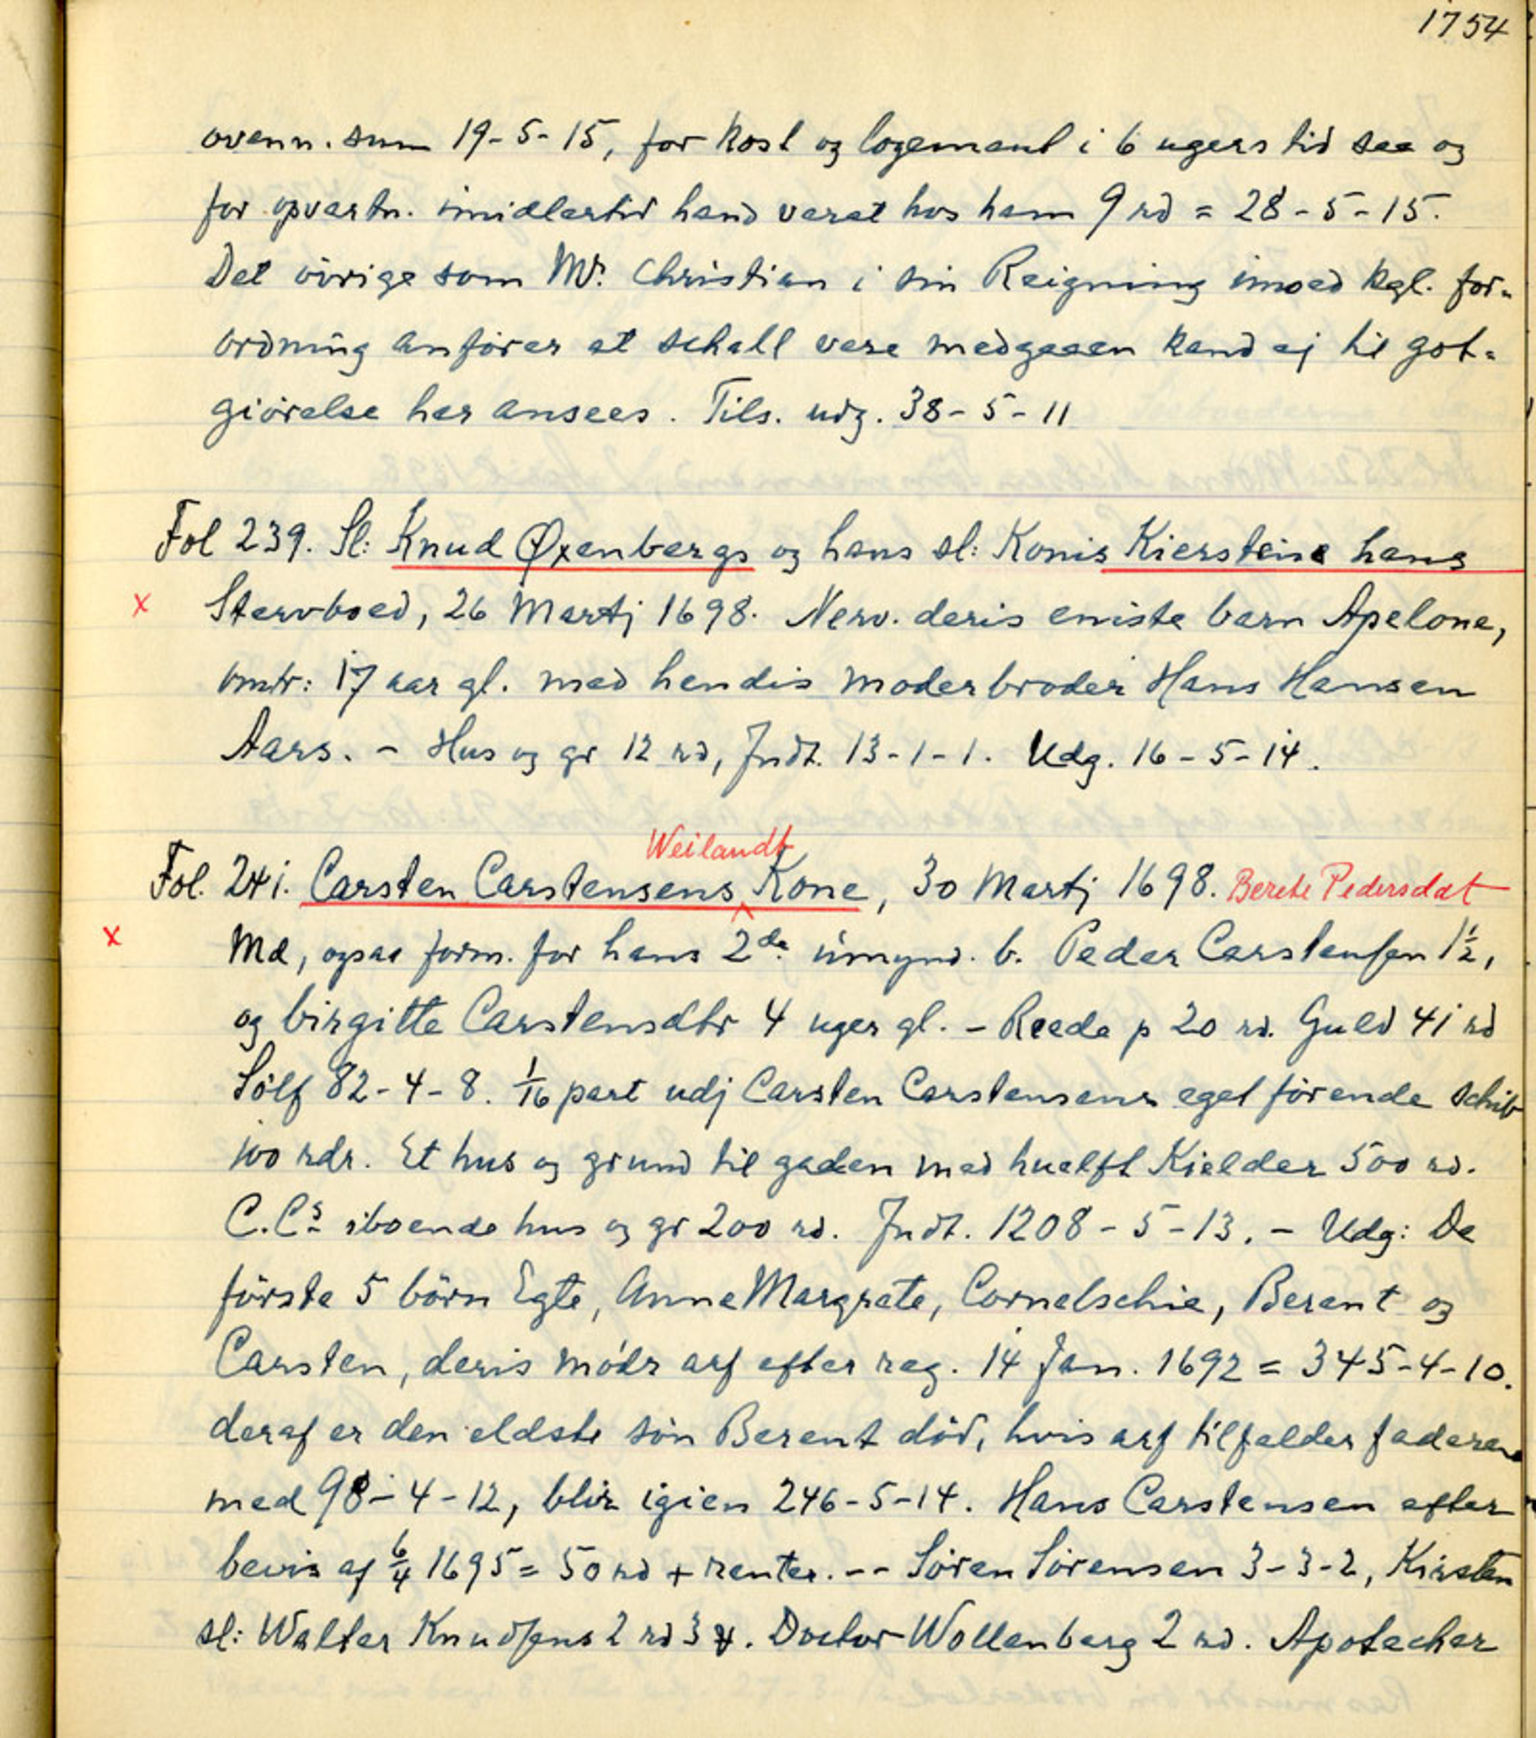 1754
ovenn. sum 19-5-15, for kost og logement i 6 ugers tid saa og
for opvartn. imidlertid hand veret hos ham 9 rd = 28-5-15.
Det övrige som Mr. Christian i sin Reigning imoed kgl. for-
ordning anförer at schall vere medgaaen kand ej til got-
giörelse her ansees. Tils. udg. 38-5-11
Fol 239. Sl: Knud Øxenbergs og hans sl: Konis Kiersteins hans
x Stervboed, 26 Martj 1698. Nerv. deris eniste barn Apelone,
omtr: 17 aar gl. med hendis moderbroder Hans Hansen
Aars. - Hus og gr 12 rd, Indt. 13-1-1. Udg. 16-5-14.
Weilandt
Fol. 241. Carsten Carstensens Kone, 30 Martj 1698. Berete Pedersdat
x Md, ogsaa form. for hans 2de umynd. b. Peder Carstensen 1½,
og birgitte Carstensdtr 4 uger gl. - Reede p 20 rd. Guld 41 rd
Sölf 82-4-8. 1/16 part udj Carsten Carstensens eget förende schib
100 rdr. Et hus og grund til gaden med huelft Kielder 500 rd.
C.Cs iboende hus og gr 200 rd. Indt. 1208-5-13. - Udg: De
förste 5 börn Egte, Anne Margrete, Cornelschie, Berent og
Carsten, deris mödr arf efter reg. 14 Jan. 1692 = 345-4-10.
deraf er den eldste sön Berent död, hvis arf tilfalder faderen
med 98-4-12, blir igien 246-5-14. Hans Carstensen efter
bevis af 6/4 1695 = 50 rd + renter. -- Sören Sörensen 3-3-2, Kirsten
sl: Walter Knudsens 2 rd 3 . Doctor Wollenberg 2 rd. Apotecher